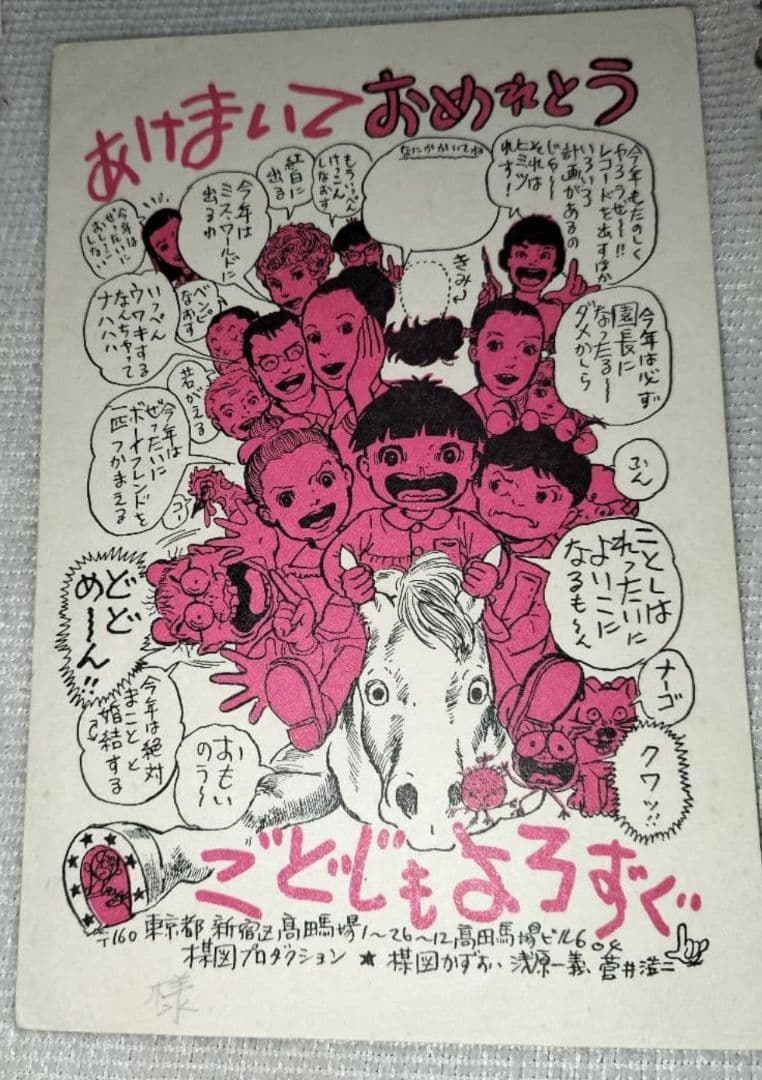 あけまいて おめれとう
今年もたのしく
やろうぜ〜!!
レコードを出すほか
いろいろ
計画があるの
じゃ〜〜
それは
ヒミツ
れす!
なにかかいてね
きみ
もういっぺん
けっこん
しなおす
紅白に
出る
今年は
ミス・ワールドに
出るゆ
今年は
ぜったいに
おねしょ
しない
いっぺん
ウワキする
なんちゃって
ナハハハ
ベンピ
なおす
若がえる
今年は必ず
園長に
なったる〜
ダメかしら
今年は
ぜったいに
ボーイフレンドを
一匹つかまえる
コケ
ぶん
ことしは
れったいに
よいこに
なるも〜ん
どど
め〜〜ん!!
ナーゴ
今年は絶対
まことと
婚結する
おもい
のう〜
クワッ!!
ごどじも よろずぐ
〒160 東京都新宿区高田馬場1〜26〜12高田馬場ビル604
楳図プロダクション ★ 楳図かずお、浅原一義、菅井浩二
様